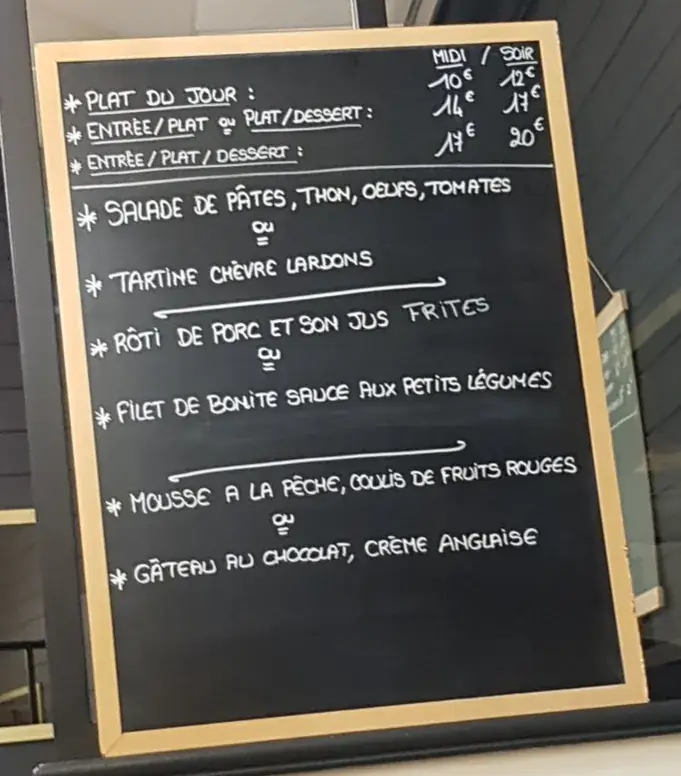 MIDI / SOIR
* PLAT DU JOUR : 10€ 12€
* ENTRÉE/PLAT ou PLAT/DESSERT : 14€ 17€
* ENTRÉE/PLAT/DESSERT : 17€ 20€
* SALADE DE PÂTES, THON, OEUFS, TOMATES
ou
* TARTINE CHÈVRE LARDONS
* RÔTI DE PORC ET SON JUS FRITES
ou
* FILET DE BONITE SAUCE AUX PETITS LÉGUMES
* MOUSSE A LA PÊCHE, COULIS DE FRUITS ROUGES
ou
* GÂTEAU AU CHOCOLAT, CRÈME ANGLAISE